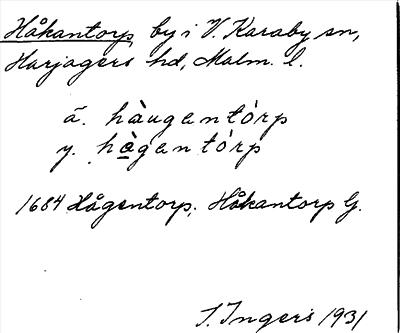 Håkantorp, by i V. Karaby sn,
Harjagers hd, Malm. l.
ä. hàugentórp
y. hògentórp
1684 Hågentorp; Håkantorp G.
I. Ingers 1931